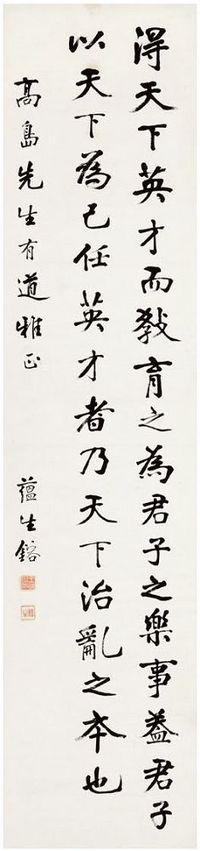 得天下英才而教育之為君子之樂事蓋君子
以天下為己任英才者乃天下治亂之本也
高島先生有道雅正
蘊生鎔